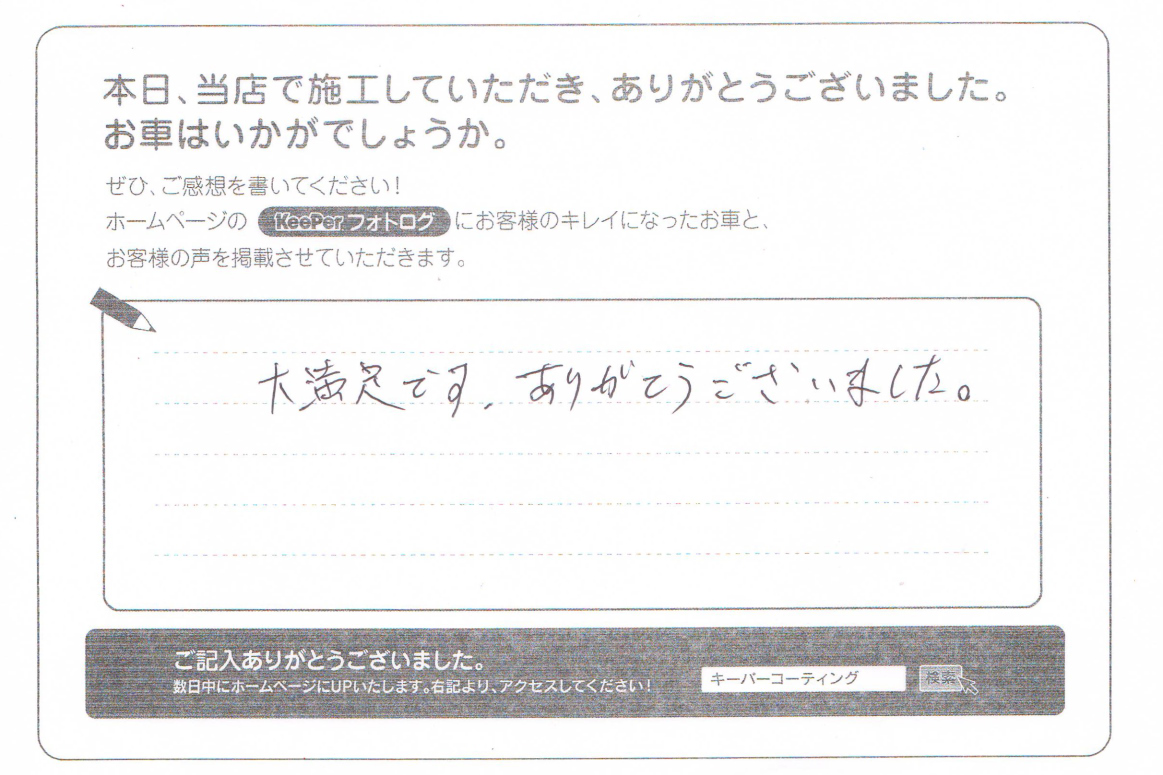 本日、当店で施工していただき、ありがとうございました。
お車はいかがでしょうか。
ぜひ、ご感想を書いてください！
ホームページの KeePer フォトログ にお客様のキレイになったお車と、
お客様の声を掲載させていただきます。
大満足です、ありがとうございました。
ご記入ありがとうございました。
数日中にホームページにUPいたします。右記より、アクセスしてください！
キーパーコーティング 検索